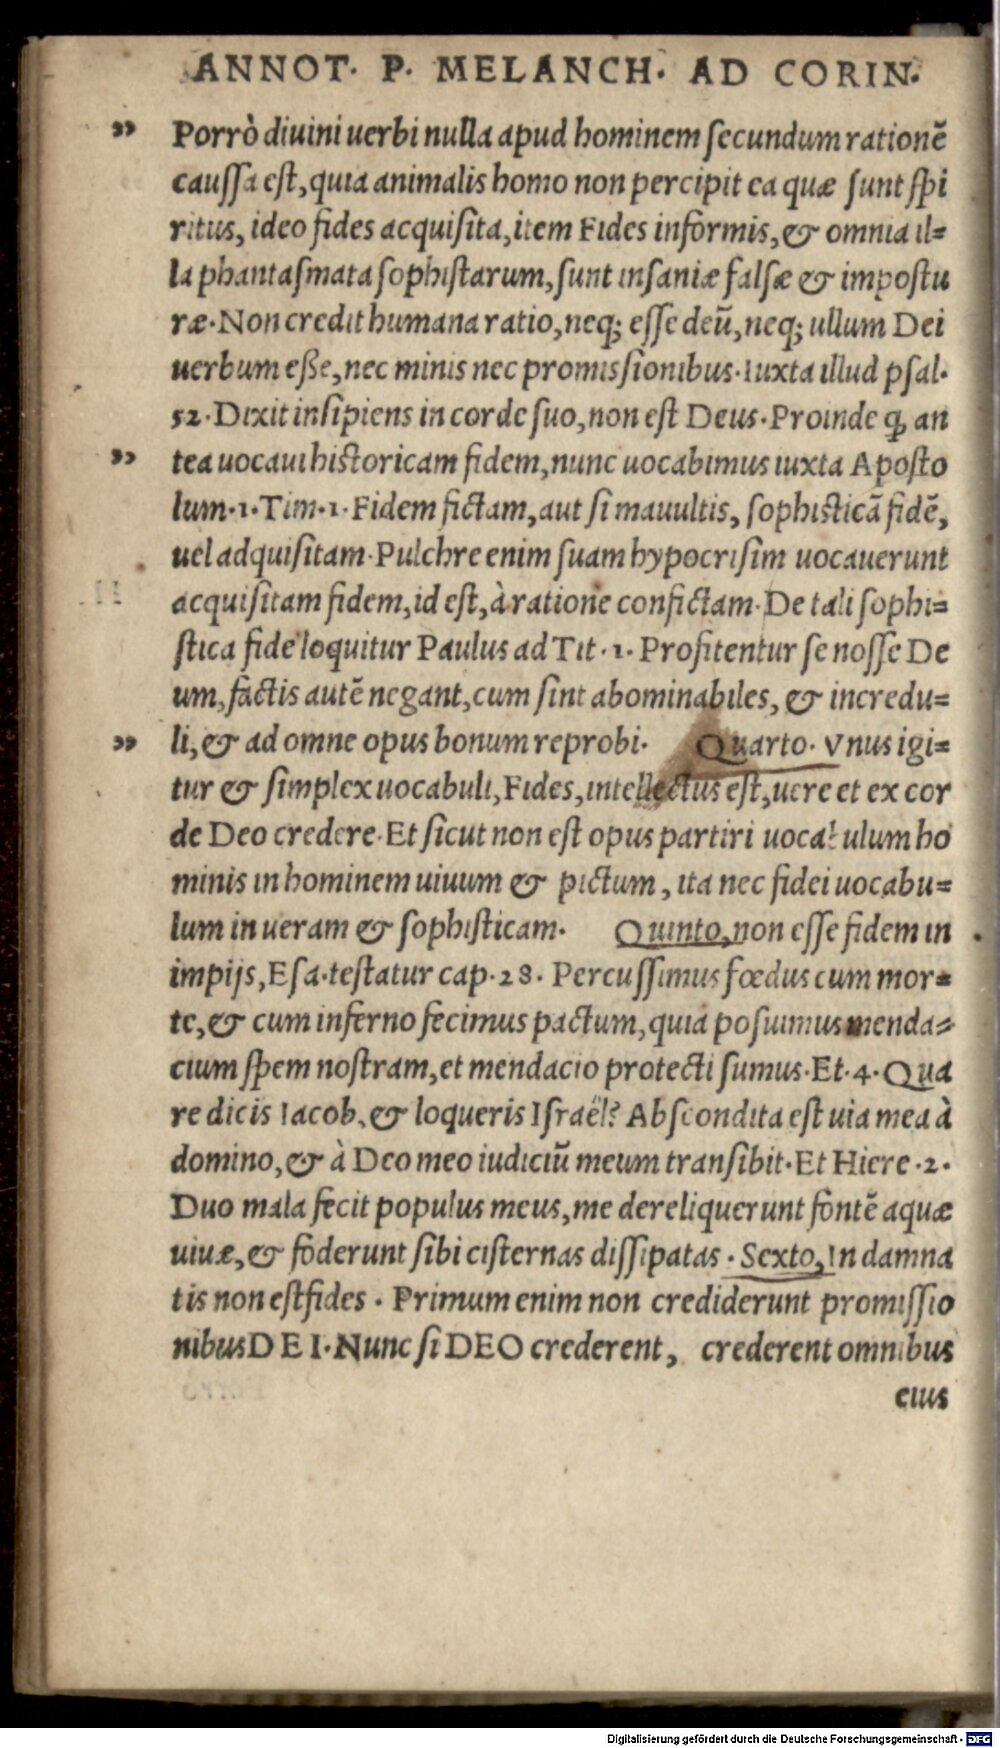 ANNOT. P. MELANCH. AD CORIN.
„ Porrò diuini uerbi nulla apud hominem ſecundum rationē
cauſſa eſt, quia animalis homo non percipit ea quæ ſunt ſpi
ritus, ideo fides acquiſita, item Fides informis, & omnia il=
la phantaſmata ſophiſtarum, ſunt inſaniæ falſæ & impoſtu
ræ. Non credit humana ratio, neq; eſſe deū, neq; ullum Dei
uerbum eße, nec minis nec promiſſionibus. Iuxta illud pſal.
52. Dixit inſipiens in corde ſuo, non eſt Deus. Proinde ꝙ an
„ tea uocaui hiſtoricam fidem, nunc uocabimus iuxta Apoſto
lum. 1. Tim. 1. Fidem fictam, aut ſi mauultis, ſophiſticā fidē,
uel adquiſitam. Pulchre enim ſuam hypocriſim uocauerunt
acquiſitam fidem, id eſt, à ratione confictam. De tali ſophi=
ſtica fide loquitur Paulus ad Tit. 1. Profitentur ſe noſſe De
um, factis autē negant, cum ſint abominabiles, & incredu=
„ li, & ad omne opus bonum reprobi. Quarto. Vnus igi=
tur & ſimplex uocabuli, Fides, intellectus eſt, uere et ex cor
de Deo credere. Et ſicut non eſt opus partiri uocabulum ho
minis in hominem uiuum & pictum, ita nec fidei uocabu=
lum in ueram & ſophiſticam. Quinto, non eſſe fidem in
impijs, Eſa. teſtatur cap. 28. Percuſſimus fœdus cum mor=
te, & cum inferno fecimus pactum, quia poſuimus menda=
cium ſpem noſtram, et mendacio protecti ſumus. Et. 4. Qua
re dicis Iacob, & loqueris Iſraël? Abſcondita eſt uia mea à
domino, & à Deo meo iudiciū meum tranſibit. Et Hiere. 2.
Duo mala fecit populus meus, me dereliquerunt fontē aquæ
uiuæ, & foderunt ſibi ciſternas diſſipatas. Sexto, In damna
tis non eſt fides. Primum enim non crediderunt promiſſio
nibus DEI. Nunc ſi DEO crederent, crederent omnibus
eius
Digitalisierung gefördert durch die Deutsche Forschungsgemeinschaft - DFG